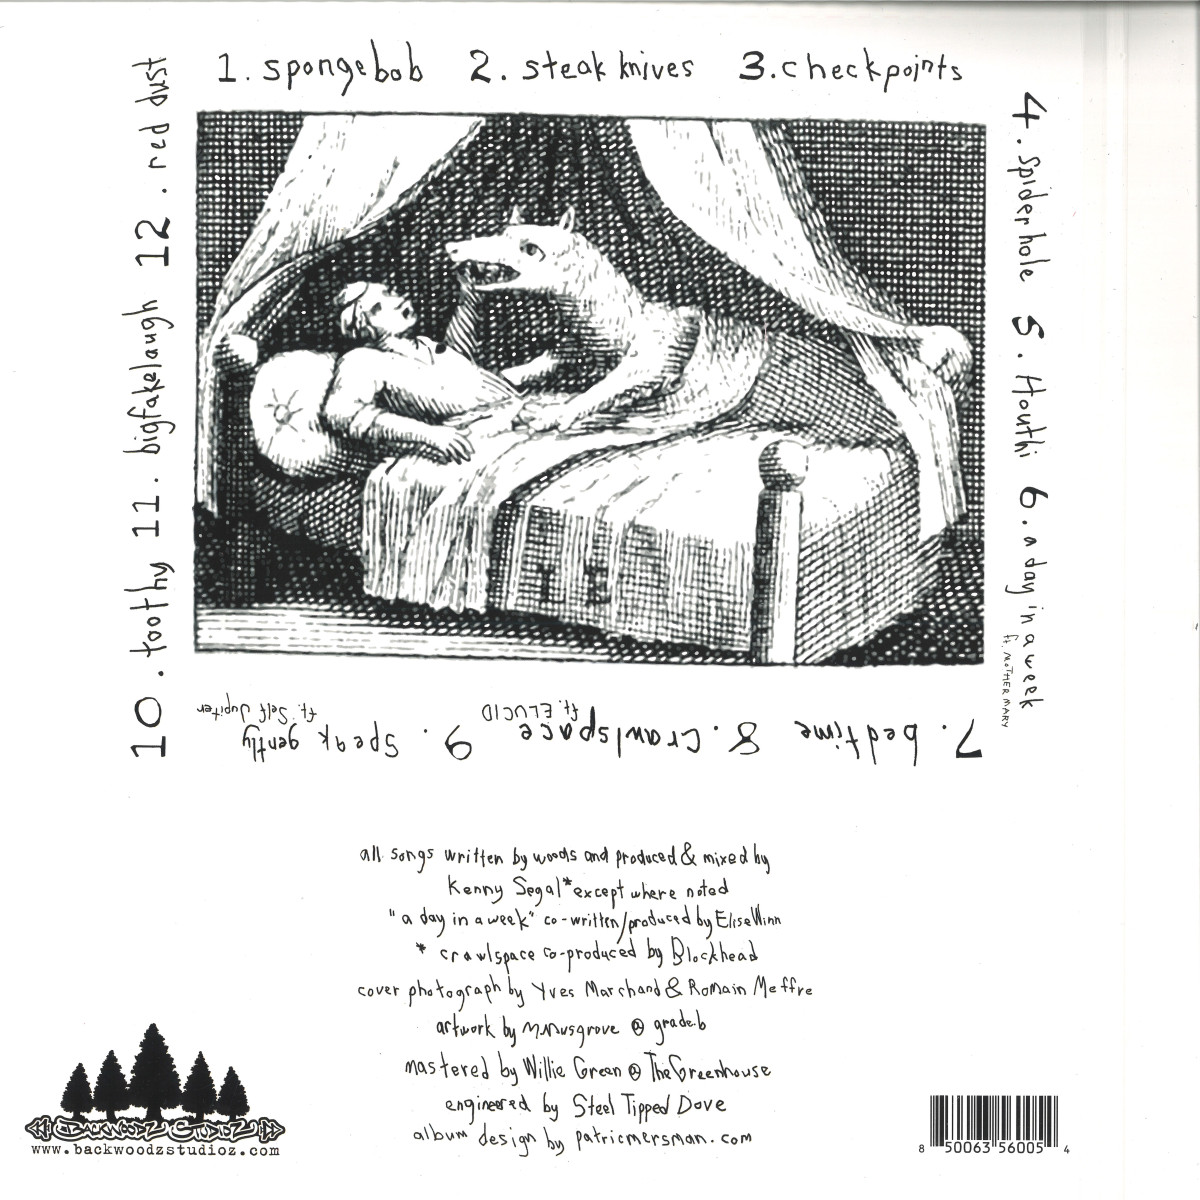 1. spongebob 2. steak knives 3. checkpoints
4. spider hole 5. Houthi 6. a day in a week
ft. MOTHER MARY
7. bedtime 8. crawlspace 9. speak gently
ft. ELUCID
ft. Self Jupiter
10. toothy 11. bigfakelaugh 12. red dust
all songs written by woods and produced & mixed by
Kenny Segal *except where noted
"a day in a week" co-written/produced by Elise Winn
* crawlspace co-produced by Blockhead
cover photograph by Yves Marchand & Romain Meffre
artwork by M.Musgrove @ grade.b
mastered by Willie Green @ The Greenhouse
engineered by Steel Tipped Dove
album design by patricmersman.com
BACKWOODZ STUDIOZ
www.backwoodzstudioz.com
8 50063 56005 4